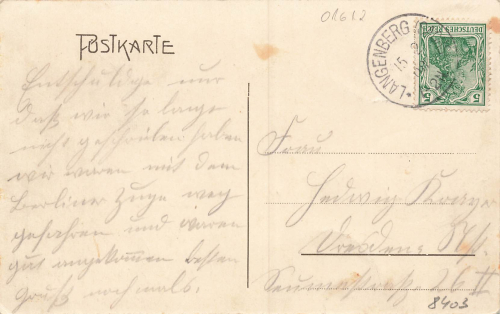 01612
POSTKARTE
LANGENBERG
DEUTSCHES REICH
5 5
Entschuldige nur
daß wir so lange
nicht geschrieben haben
wir waren mit dem
Berliner Zuge weg
gefahren und waren
gut angekommen besten
Gruß nochmals.
Frau
Hedwig
Dresden
Seumestraße 26 II
8403